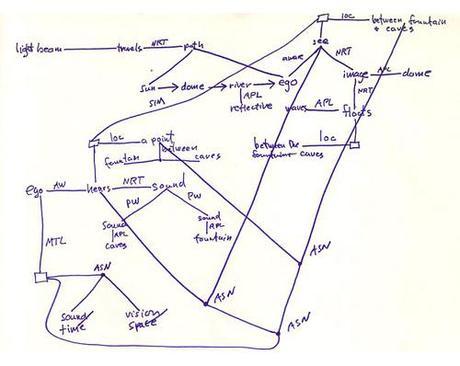 loc between fountain
& caves
see
light beam travels NRT path
aware NRT
sun dome river ego image APL dome
APL
reflective
NRT
SIM
waves APL floats
loc a point
between
fountain caves
between the loc
fountain caves
ego AW hears NRT sound
PW PW
sound
APL
caves
sound
APL
fountain
MTL
ASN
ASN
ASN
ASN
sound
time
vision
space